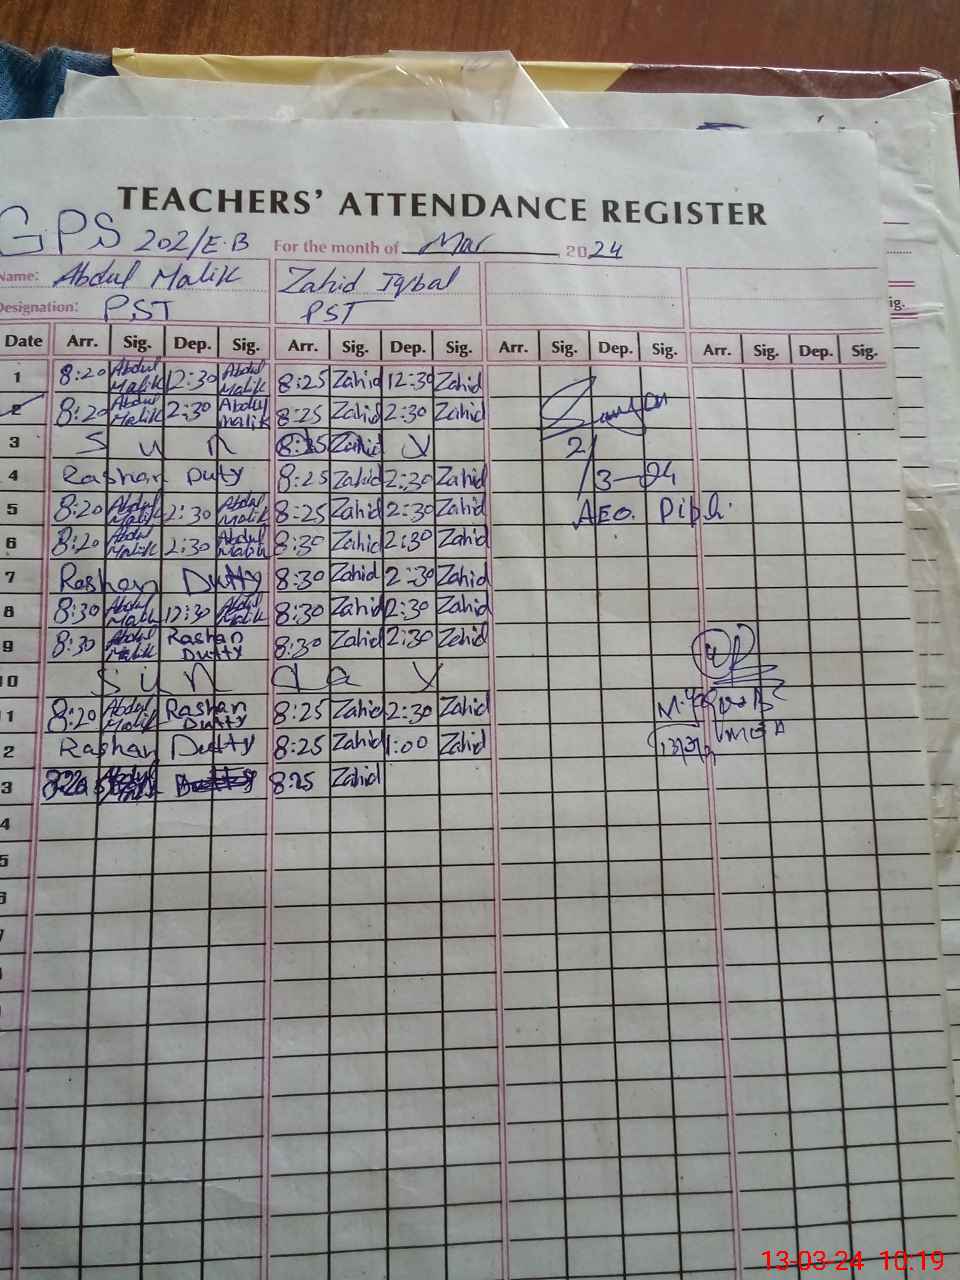 TEACHERS' ATTENDANCE REGISTER
GPS 202/E.B For the month of Mar 2024
Name: Abdul Malik Zahid Iqbal
Designation: PST PST
ig.
Date Arr. Sig. Dep. Sig. Arr. Sig. Dep. Sig. Arr. Sig. Dep. Sig. Arr. Sig. Dep. Sig.
1 8:20 Abdul Malik 12:30 Abdul Malik 8:25 Zahid 12:30 Zahid
2 8:20 Abdul Malik 2:30 Abdul Malik 8:25 Zahid 2:30 Zahid
3 S u n Zahid y 2/3-24
4 Rashan Duty 8:25 Zahid 2:30 Zahid
5 8:20 Abdul Malik 2:30 Abdul Malik 8:25 Zahid 2:30 Zahid AEO.
6 8:20 Abdul Malik 2:30 Abdul Malik 8:30 Zahid 2:30 Zahid
7 Rashan Dutty 8:30 Zahid 2:30 Zahid
8 8:30 Abdul Malik 12:30 Abdul Malik 8:30 Zahid 2:30 Zahid
9 8:30 Abdul Malik Rashan Dutty 8:30 Zahid 2:30 Zahid
10 S u n d a y
11 8:20 Abdul Malik Rashan Dutty 8:25 Zahid 2:30 Zahid
2 Rashan Dutty 8:25 Zahid 1:00 Zahid MEA
3 8:25 Zahid
4
5
13-03-24 10:19